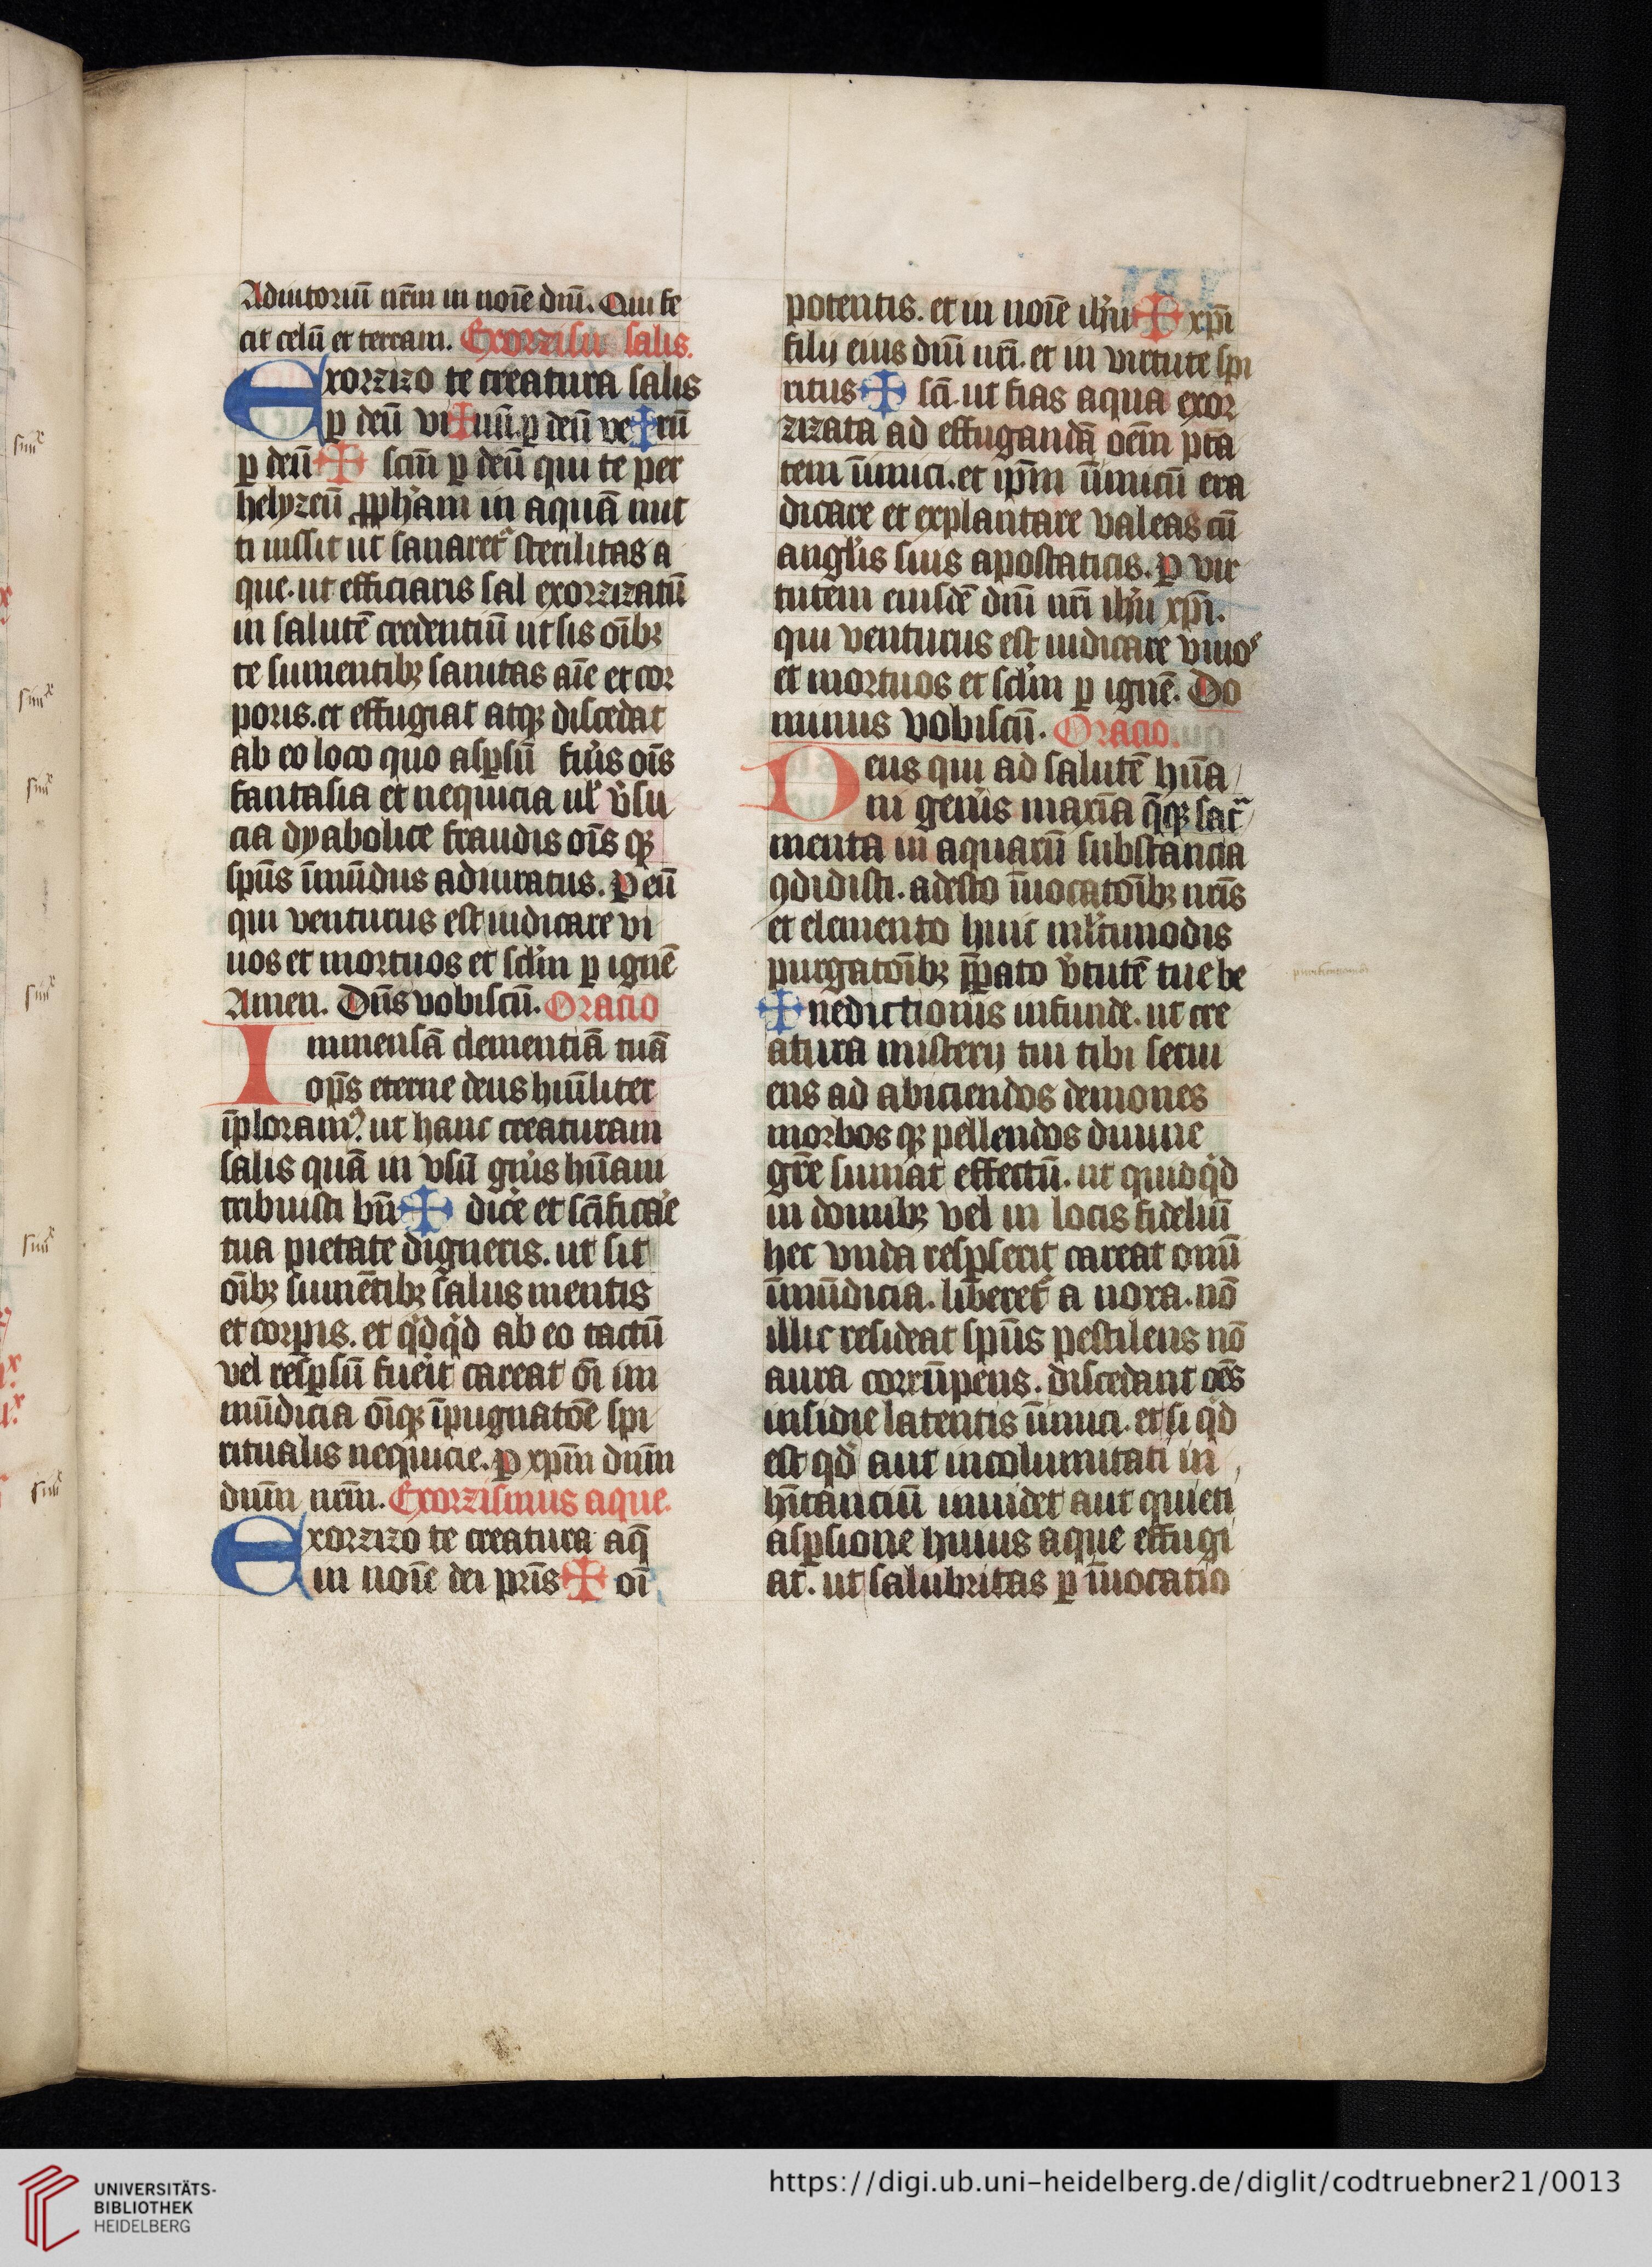 Adiutoriū nr̄m in noīe dnī. Qui fe
cit celū et terram. Exorzismus salis.
Exorzizo te creatura salis
ꝑ deū vi✠uū. ꝑ deū ve✠rū
ꝑ deū ✠ scm̄ ꝑ deū qui te per
helyzeū ꝓpham in aquā mit
ti iussit ut sanaret᷑ sterilitas a
que. ut efficiaris sal exorzizatū
in salutē credentiū ut sis oībꝫ
te sumentibꝫ sanitas aīe et cor
poris. et effugiat atqꝫ discedat
ab eo loco quo asꝑsū fu'is oīs
fantasia et nequicia ul' v̓su
cia dyabolice fraudis oīs qꝫ
spūs īmūdus adiuratus. Ꝑ eū
qui venturus est iudicare vi
uos et mortuos et sclm̄ ꝑ ignē
Amen. Dn̄s vobiscū. Oracio
Immensā clementiā tuā
op̄s eterne deus humīliter
īploramꝰ. ut hanc creaturam
salis quā in vsū gn̓is hūam
tribuisti bn̄ ✠ dic̓e et scīfica̓e
tua pietate digneris. ut sit
oībꝫ sumētibꝫ salus mentis
et corpīs. et qͥdqͥd ab eo tactū
vel resꝑsū fueīt careat oī im
mūdicia oīqꝫ īpugnatōe spi
ritualis nequicie. Ꝑ xp̄m dnm̄
dnm̄ nr̄m. Exorzismus aque.
Exorzizo te creatura aq̄
in noīe dei pr̄is ✠ oī
potentis. et in noīe ihū ✠ xpī
filij eius dnī nrī. et in virtute spi
ritus ✠ scī. ut fias aqua exor
zizata ad effugandā oēm ptā
tem īimici. et ip̄m īimicū era
dicare et explantare valeas cū
angl̓is suis apostaticis. Ꝑ vir
tutem eiusdē dnī nrī ihū xpī.
qui venturus est iudicare viuoˢ
et mortuos et sclm̄ ꝑ ignē. Do
minus vobiscū. Oracio.
Deus qui ad salutē hūa
ni gen̓is maxīa q̄qꝫ sacᵃ
menta in aquarū substancia
ꝯdidisti. adesto īuocatoībꝫ nrīs
et elemento huic ml̓timodis
purgatoībꝫ p̄parato v̓tutē tue be
✠nedictionis infunde. ut cre
atura misterij tui tibi serui
ens ad abiciendos demones
morbos qꝫ pellendos diuine
gr̄e sumat effectū. ut quidqͥd
in domibꝫ vel in locis fideliū
hec vnda resꝑserit careat omī
īmūdicia. liberet᷑ a noxa. nō
illic resideat spūs pestilens nō
aura corrūpens. discedant oēs
insidie latentis īimici. et si qͥd
est qd̓ aut incolumitati in
hītanciū inuidet aut quieti
asꝑsione huius aque effugi
at. ut salubritas ꝑ īuocatio
UNIVERSITÄTS-
BIBLIOTHEK
HEIDELBERG
https://digi.ub.uni-heidelberg.de/diglit/codtruebner21/0013